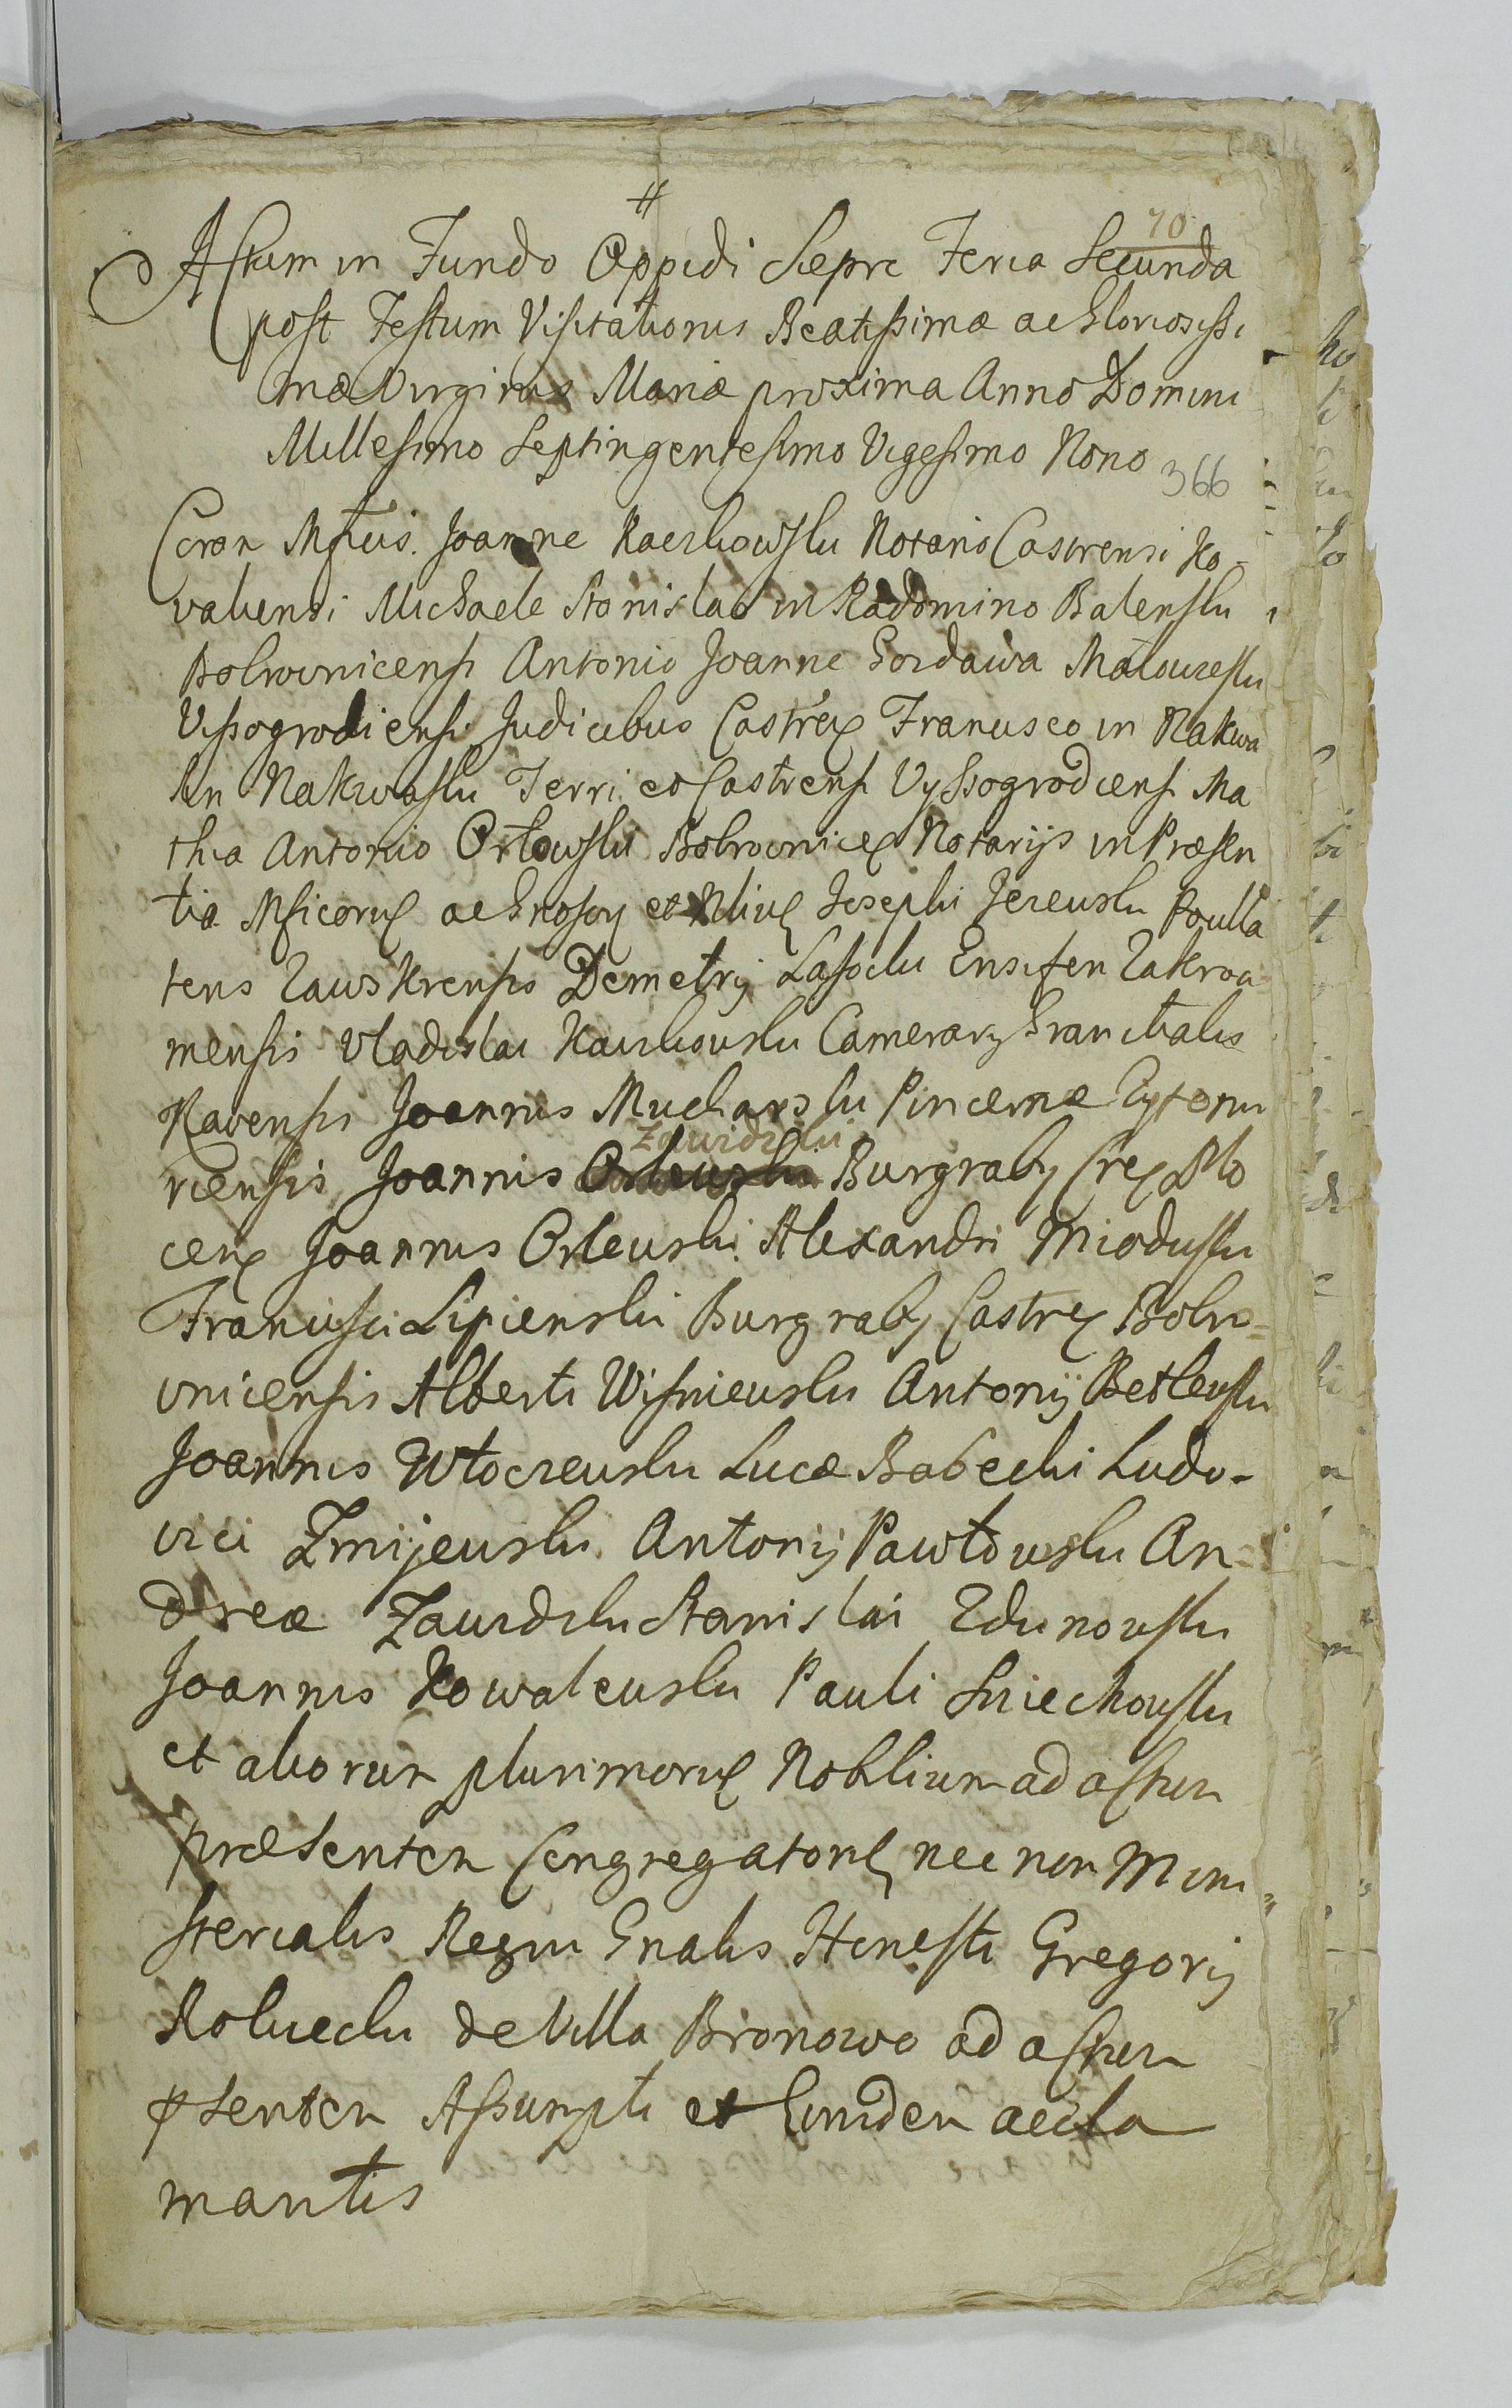 #
70
Actum in Fundo Oppidi Siepre Feria Secunda
post Festum Visitationis Beatissimæ ac Gloriosissi
mæ Virginis Mariæ proxima Anno Domini
Millesimo Septingentesimo Vigesimo Nono
366
Coram Mfcis. Joanne Kaczkowski Notario Castrensi Ko-
valiensi Michaele Stanislao in Radomino Balenski
Bobrovnicensi Antonio Joanne Gozdawa Małowieski
Vissogrodiensi Judicibus Castren Francisco in Nakwa
sin Nakwaski Terri et Castrensi Vyssogrodiensi Ma
thia Antonio Orłowski Bobrovnicen Notarijs in Præsen
tia Mficorum ac Gnosor et Nlium Josephi Jezewski
tens Zawskrensis Demetrij Lasocki Ensiferi Zakroci
mensis Vladislai Kaczkowski Camerarij Granitialis
Ravensis Joannis Mucharski Pincernæ Zytomi
Zawidzki
riensis Joannis Orlewski Burgrabij Cren Plo
cen Joannis Orlewski Alexandri Mioduski
Francisci Lipienski Burgrabij Castren Bobro=
vnicensis Alberti Wisniewski Antonij Betlewski
Joannis Włoczewski Lucæ Babecki Ludo-
vici Zmijewski Antonij Pawłowski An=
dreæ Zawidzki Stanislai Zdunowski
Joannis Kowalewski Pauli Sniechowski
et aliorum plurimorum Nobilium ad actum
præsentem Congregatorum nec non Mini=
sterialis Regni Gnalis Honesti Gregorij
Rolniecki de Villa Bronowo ad actum
psentem Assumpti et Eundem accla
mantis